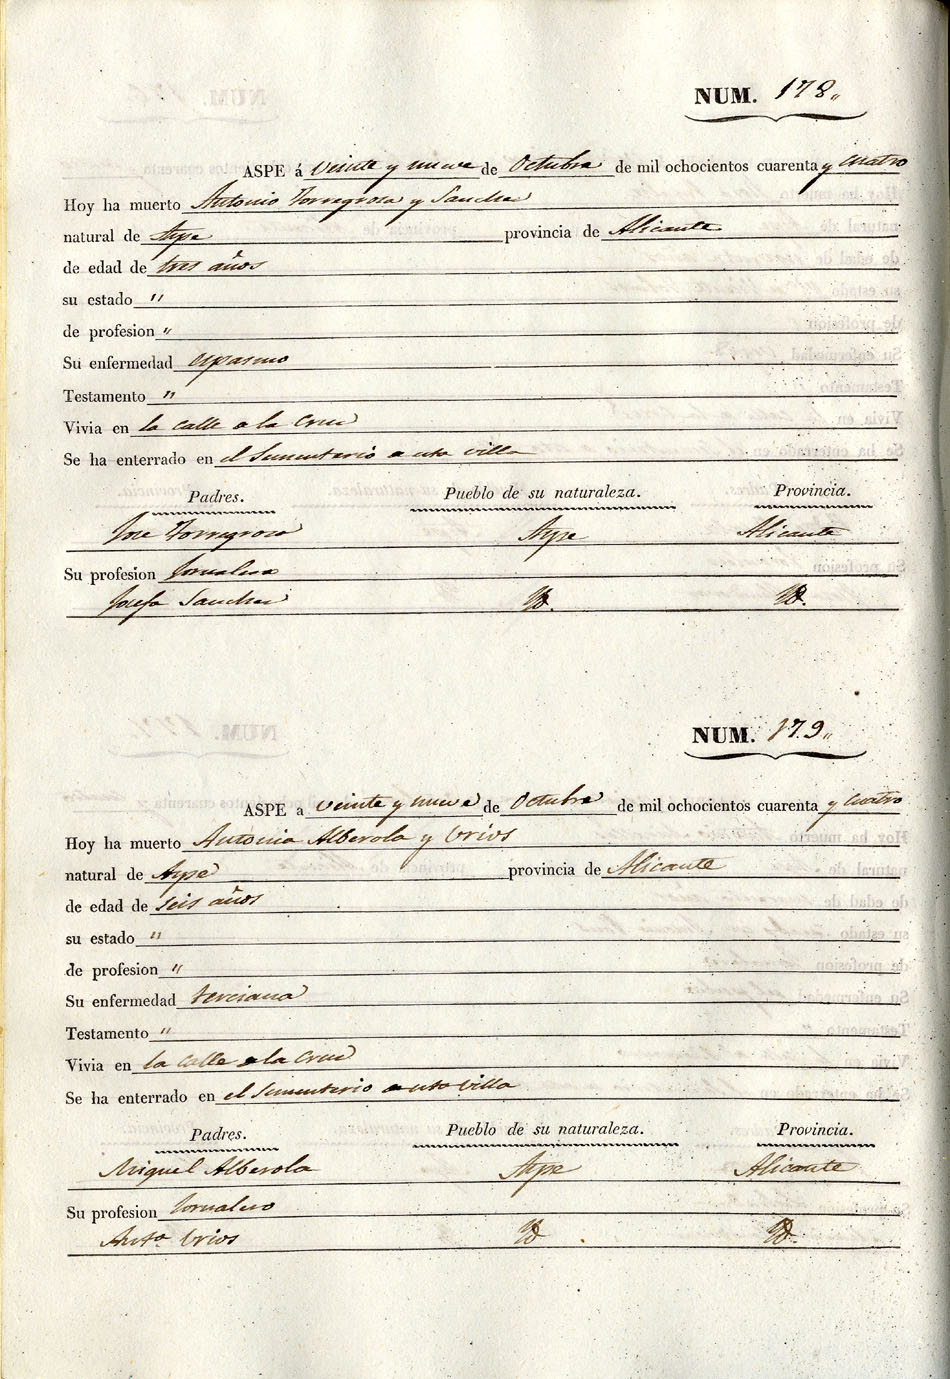 NUM. 178,,
ASPE á veinte y nueve de Octubre de mil ochocientos cuarenta y cuatro
Hoy ha muerto Antonio Torregrosa y Sanchez
natural de Aspe provincia de Alicante
de edad de tres años
su estado "
de profesion "
Su enfermedad espasmo
Testamento "
Vivia en la calle e la Cruz
Se ha enterrado en el Sementerio e esta villa
Padres. Pueblo de su naturaleza. Provincia.
Jose Torregrosa Aspe Alicante
Su profesion Jornalero
Josefa Sanchez Yd. Yd.
NUM. 179,,
ASPE a veinte y nueve de Octubre de mil ochocientos cuarenta y cuatro
Hoy ha muerto Antonia Alberola y Orios
natural de Aspe provincia de Alicante
de edad de seis años
su estado "
de profesion "
Su enfermedad terciana
Testamento "
Vivia en la calle e la Cruz
Se ha enterrado en el Sementerio e esta villa
Padres. Pueblo de su naturaleza. Provincia.
Miguel Alberola Aspe Alicante
Su profesion Jornalero
Anta. Orios Yd. Yd.